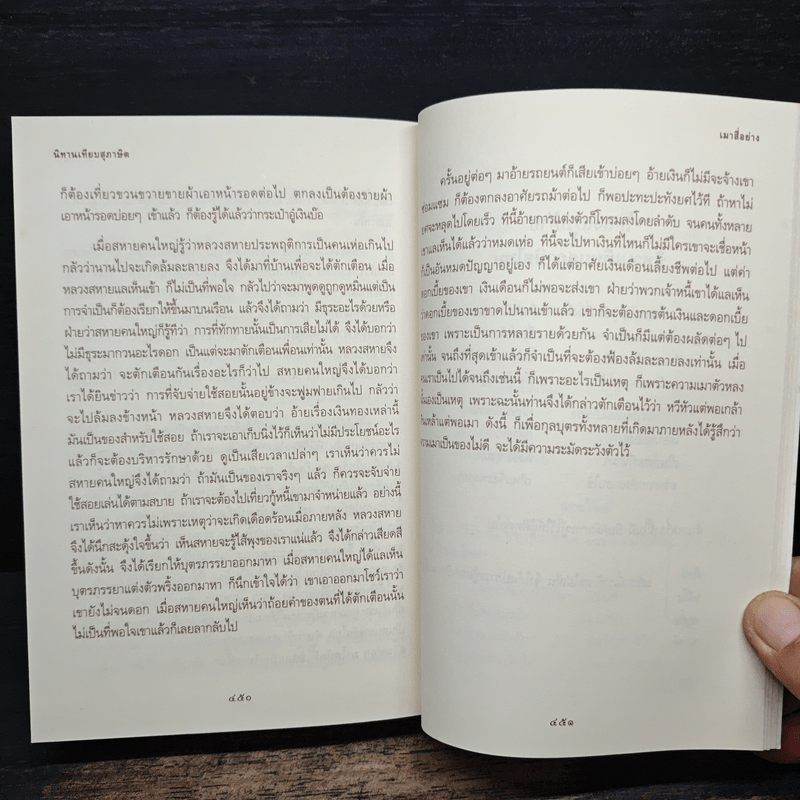 นิทานเทียบสุภาษิต
ก็ต้องเที่ยวขวนขวายขายผ้าเอาหน้ารอดต่อไป ตกลงเป็นต้องขายผ้า
เอาหน้ารอดบ่อยๆ เข้าแล้ว ก็ต้องรู้ได้แล้วว่ากระเป๋าอู๋เงินบ๊อ
เมื่อสหายคนใหญ่รู้ว่าหลวงสหายประพฤติการเป็นคนเห่อเกินไป
กลัวว่านานไปจะเกิดล้มละลายลง จึงได้มาที่บ้านเพื่อจะได้ตักเตือน เมื่อ
หลวงสหายแลเห็นเข้า ก็ไม่เป็นที่พอใจ กลัวไปว่าจะมาพูดดูถูกดูหมิ่นแต่เป็น
การจำเป็นก็ต้องเรียกให้ขึ้นมาบนเรือน แล้วจึงได้ถามว่า มีธุระอะไรด้วยหรือ
ฝ่ายว่าสหายคนใหญ่ก็รู้ทีว่า การที่ทักทายนั้นเป็นการเสียไม่ได้ จึงได้บอกว่า
ไม่มีธุระมากวนอะไรดอก เป็นแต่จะมาตักเตือนเพื่อนเท่านั้น หลวงสหายจึง
ได้ถามว่า จะตักเตือนกันเรื่องอะไรก็ว่าไป สหายคนใหญ่จึงได้บอกว่า
เราได้ยินข่าวว่า การที่จับจ่ายใช้สอยนั้นอยู่ข้างจะฟูมฟายเกินไป กลัวว่า
จะไปล้มลงข้างหน้า หลวงสหายจึงได้ตอบว่า อ้ายเรื่องเงินทองเหล่านี้
มันเป็นของสำหรับใช้สอย ถ้าเราจะเอาเก็บนิ่งไว้ก็เห็นว่าไม่มีประโยชน์อะไร
แล้วก็จะต้องบริหารรักษาด้วย ดูเป็นเสียเวลาเปล่าๆ เราเห็นว่าควรไม่
สหายคนใหญ่จึงได้ถามว่า ถ้ามันเป็นของเราจริงๆ แล้ว ก็ควรจะจับจ่าย
ใช้สอยเล่นได้ตามสบาย ถ้าเราจะต้องไปเที่ยวกู้หนี้เขามาจำหน่ายแล้ว อย่างนี้
เราเห็นว่าหาควรไม่เพราะเหตุว่าจะเกิดเดือดร้อนเมื่อภายหลัง หลวงสหาย
จึงได้นึกสะดุ้งใจขึ้นว่า เห็นสหายจะรู้ไส้พุงของเราแน่แล้ว จึงได้กล่าวเสียดสี
ขึ้นดังนั้น จึงได้เรียกให้บุตรภรรยาออกมาหา เมื่อสหายคนใหญ่ได้แลเห็น
บุตรภรรยาแต่งตัวพริ้งออกมาหา ก็นึกเข้าใจได้ว่า เขาเอาออกมาโชว์เราว่า
เขายังไม่จนดอก เมื่อสหายคนใหญ่เห็นว่าถ้อยคำของตนที่ได้ตักเตือนนั้น
ไม่เป็นที่พอใจเขาแล้วก็เลยลากลับไป
๔๕๐
เมาสี่อย่าง
ครั้นอยู่ต่อๆ มาอ้ายรถยนต์ก็เสียเข้าบ่อยๆ อ้ายเงินก็ไม่มีจะจ้างเขา
ซ่อมแซม ก็ต้องตกลงอาศัยรถม้าต่อไป ก็พอปะทะปะทังยศไว้ที ถ้าหาไม่
ยศจะหลุดไปโดยเร็ว ทีนี้อ้ายการแต่งตัวก็โทรมลงโดยลำดับ จนคนทั้งหลาย
เขาแลเห็นได้แล้วว่าหมดเห่อ ทีนี้จะไปหาเงินที่ไหนก็ไม่มีใครเขาจะเชื่อหน้า
ก็เป็นอันหมดปัญญาอยู่เอง ก็ได้แต่อาศัยเงินเดือนเลี้ยงชีพต่อไป แต่ค่า
ดอกเบี้ยของเขา เงินเดือนก็ไม่พอจะส่งเขา ฝ่ายว่าพวกเจ้าหนี้เขาได้แลเห็น
ว่าดอกเบี้ยของเขาขาดไปนานเข้าแล้ว เขาก็จะต้องการต้นเงินและดอกเบี้ย
ของเขา เพราะเป็นการหลายรายด้วยกัน จำเป็นก็มีแต่ต้องผลัดต่อๆ ไป
เท่านั้น จนถึงที่สุดเข้าแล้วก็จำเป็นที่จะต้องฟ้องล้มละลายลงเท่านั้น เมื่อ
เราเป็นไปได้จนถึงเช่นนี้ ก็เพราะอะไรเป็นเหตุ ก็เพราะความเมาตัวหลง
เป็นเหตุ เพราะฉะนั้นท่านจึงได้กล่าวตักเตือนไว้ว่า หวีหัวแต่พอเกล้า
กินเหล้าแต่พอเมา ดังนี้ ก็เพื่อกุลบุตรทั้งหลายที่เกิดมาภายหลังได้รู้สึกว่า
ความเมาเป็นของไม่ดี จะได้มีความระมัดระวังตัวไว้
๔๕๑